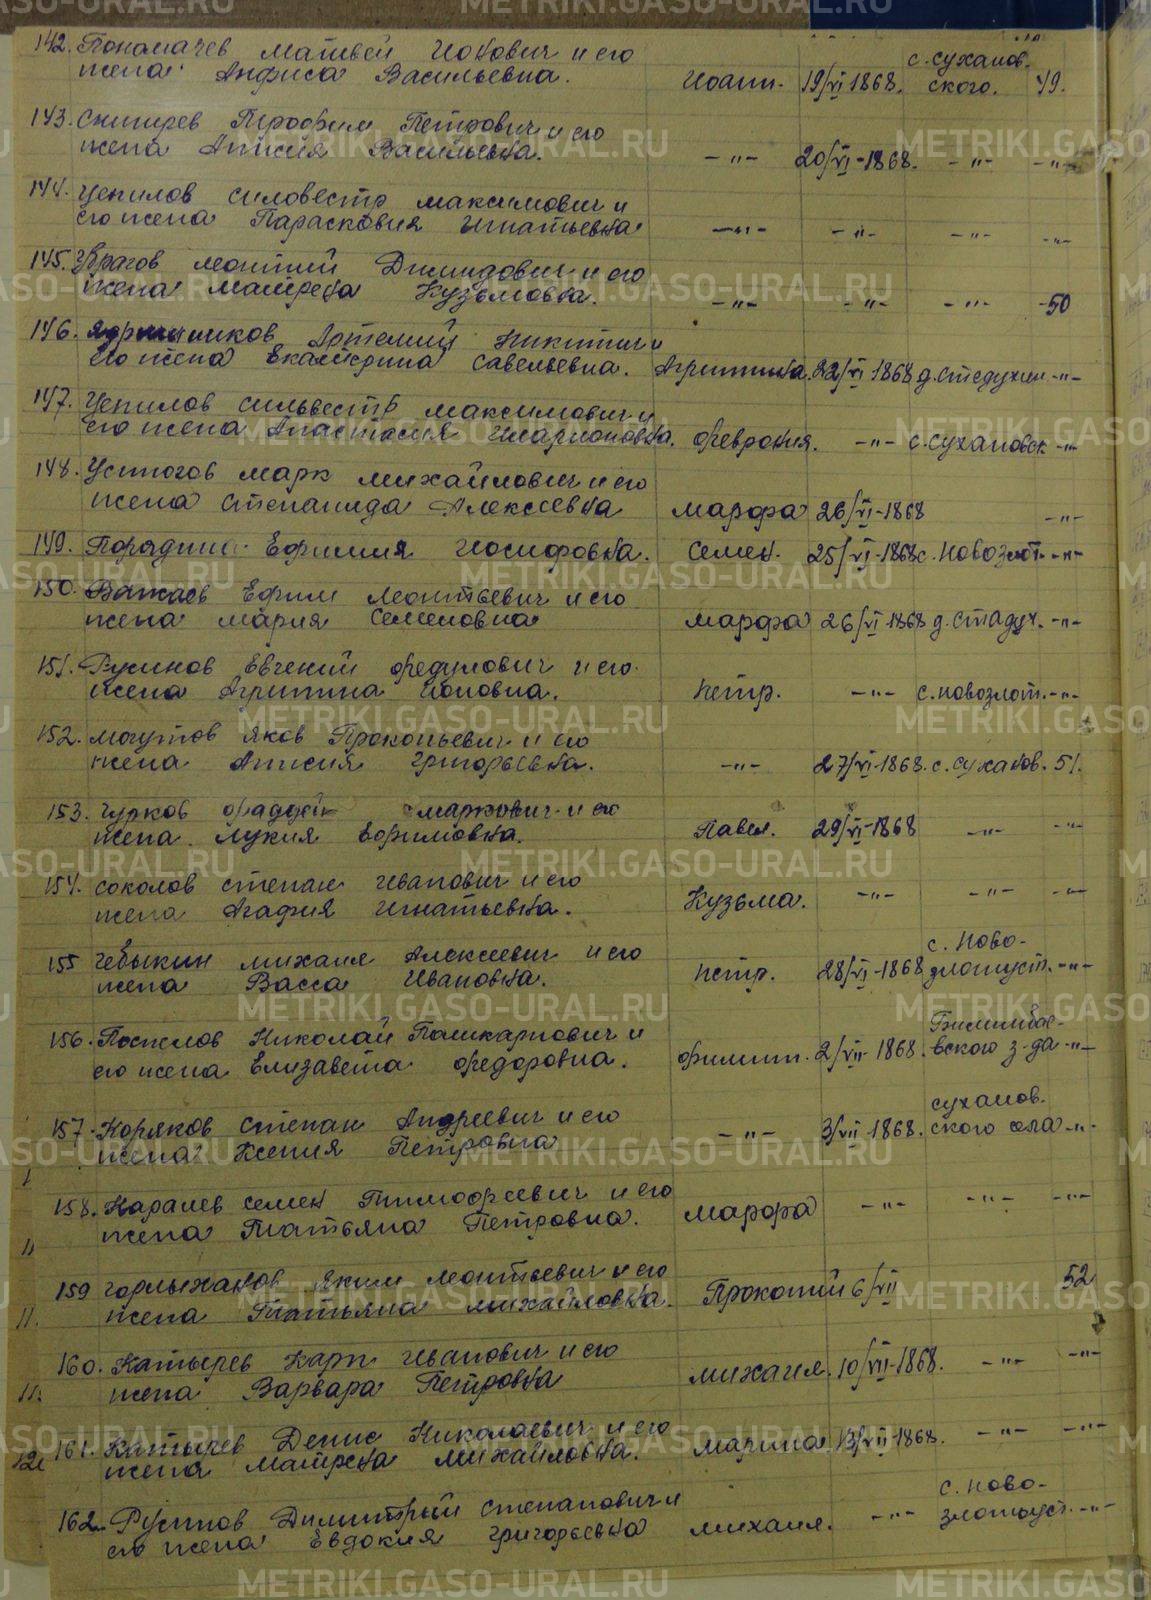 142. Пономачев Матвей Иовович и его
жена Анфиса Васильевна. Иоанн. 19/VI 1868. с. Суханов-
ского. 49.
143. Снигирев Трофим Петрович и его
жена Анисия Васильевна. -"- 20/VI-1868. -"- -"-
144. Цепилов Силовестр Максимович и
его жена Парасковия Игнатьевна -"- -"- -"- -"-
145. Леонтий Демидович и его
жена Матрена Кузьмовна. -"- -"- -"- -50
146. Артемий Никитич и
его жена Екатерина Савельевна. Агрипина. 22/VI 1868 д. Стадухин -"-
147. Цепилов Сильвестр Максимович и
его жена Анастасия Иларионовна. Феврония. -"- с. Сухановск -"-
148. Устюгов Марк Михайлович и его
жена Степанида Алексеевна Марфа 26/VI-1868 -"-
149. Ефимия Иосифовна. Семен. 25/VI-1868 с. Новозлот. -"-
150. Ефим Леонтьевич и его
жена Мария Семеновна Марфа 26/VI-1868 д. Стадух. -"-
151. Русинов Евгений Федулович и его
жена Агрипина Иововна. Петр. -"- с. Новозлот. -"-
152. Могутов Яков Прокопьевич и его
жена Анисия Григорьевна. -"- 27/VI-1868. с. Суханов. 51.
153. Гурков Фаддей Маркович и его
жена Лукия Ефимовна. Павел. 29/VI-1868 -"- -"-
154. Соколов Степан Иванович и его
жена Агафия Игнатьевна. Кузьма. -"- -"- -"-
155 Чебыкин Михаил Алексеевич и его
жена Васса Ивановна. Петр. 28/VI-1868 с. Ново-
злотуст. -"-
156. Поспелов Николай Поликарпович и
его жена Елизавета Федоровна. Филипп. 2/VII-1868. Билимбае-
вского з-да -"-
157. Коряков Степан Андреевич и его
жена Ксения Петровна -"- 3/VII-1868. Суханов-
ского села -"-
158. Каралев Семен Тимофеевич и его
жена Татьяна Петровна. Марфа -"- -"- -"-
159 Горлыханов Яким Леонтьевич и его
жена Татьяна Михайловна. Прокопий 6/VII 52
160. Катырев Карп Иванович и его
жена Варвара Петровна Михаил. 10/VII-1868. -"- -"-
161. Катырев Денис Николаевич и его
жена Матрена Михайловна. Марина. 13/VII-1868. -"- -"-
162. Русинов Димитрий Степанович и
его жена Евдокия Григорьевна Михаил. -"- с. Ново-
златоуст. -"-
METRIKI.GASO-URAL.RU